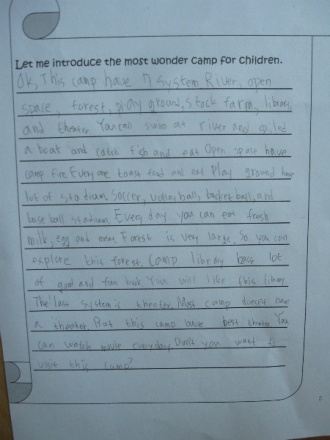 Let me introduce the most wonder camp for children.
Ok, This camp have 7 system River, open
space, forest, play ground, stock farm, library,
and theater You can swim at river and
a boat and catch fish and eat Open space have
camp fire Every one toast food and eat Play ground have
lot of stadium Soccer, volley ball, basket ball, and
base ball stadium Every day you can eat fresh
milk, egg and Forest is very large, So you can
explore this forest Camp library have lot
of good and fun book You will like this library
The last system is theater, Most camp doesn't have
a theater But this camp have best theater You
can watch movie everyday Don't you want to
visit this camp?